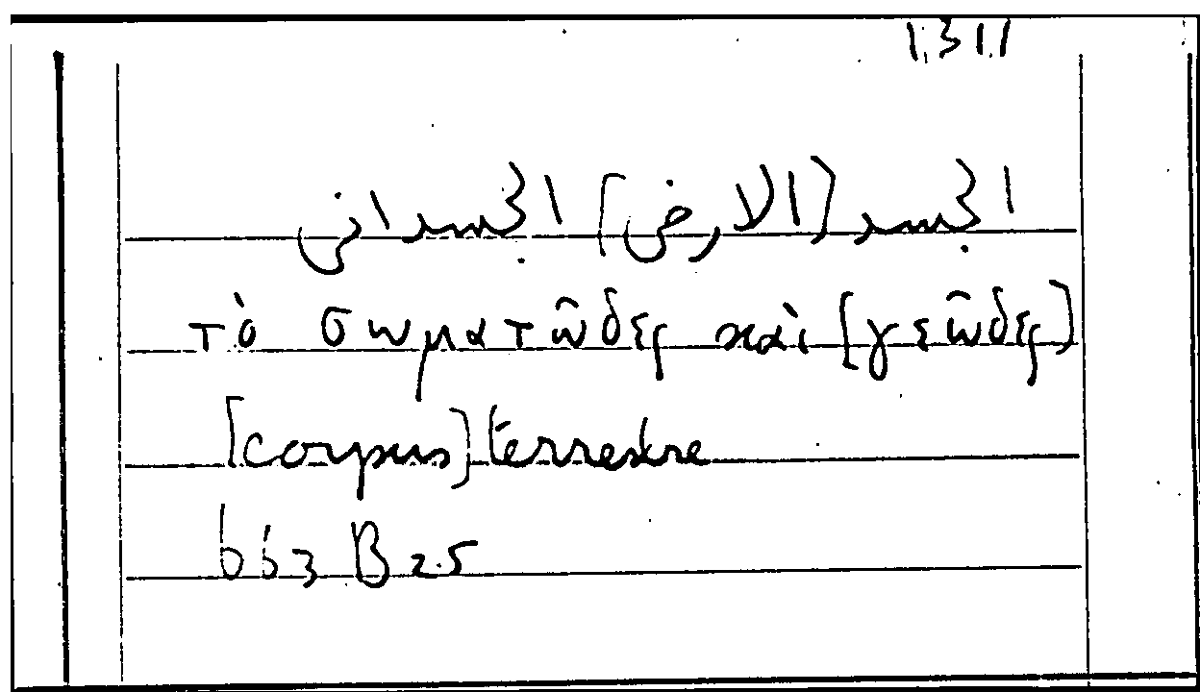 1311
الجسد [الارض] الجسدانى
τὸ σωματῶδες καὶ [γεῶδες]
[corpus] terrestre
663 B 25